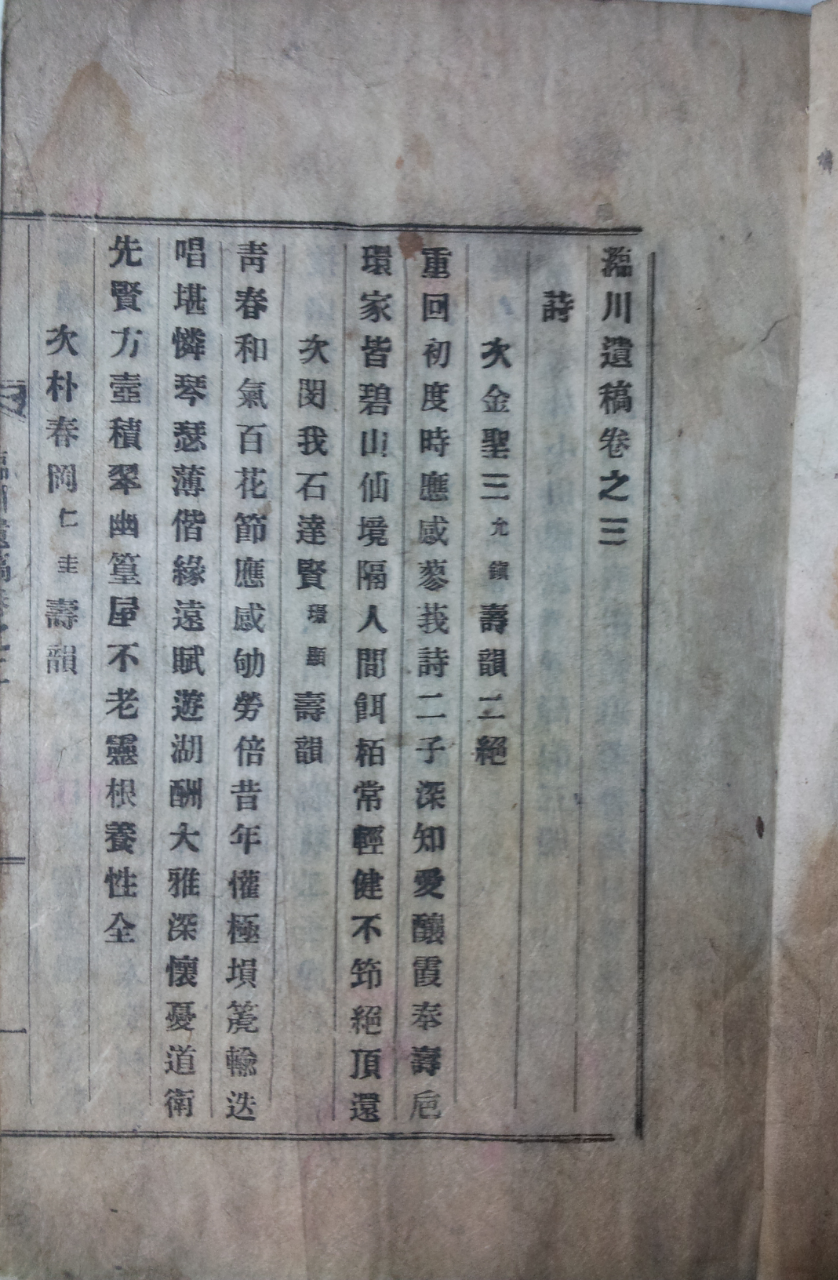 澵川遺稿卷之三
詩
次金聖三允鎭壽韻二絕
重回初度時應感蓼莪詩二子深知愛釀霞奉壽巵
環家皆碧山仙境隔人間餌栢常輕健不筇絕頂還
次閔我石達賢璟顯壽韻
靑春和氣百花節應感劬勞倍昔年懽極塤篪輸迭
唱堪憐琴瑟薄偕緣遠賦遊湖酬大雅深懷憂道衛
先賢方壺積翠幽篁屋不老靈根養性全
次朴春岡仁圭壽韻